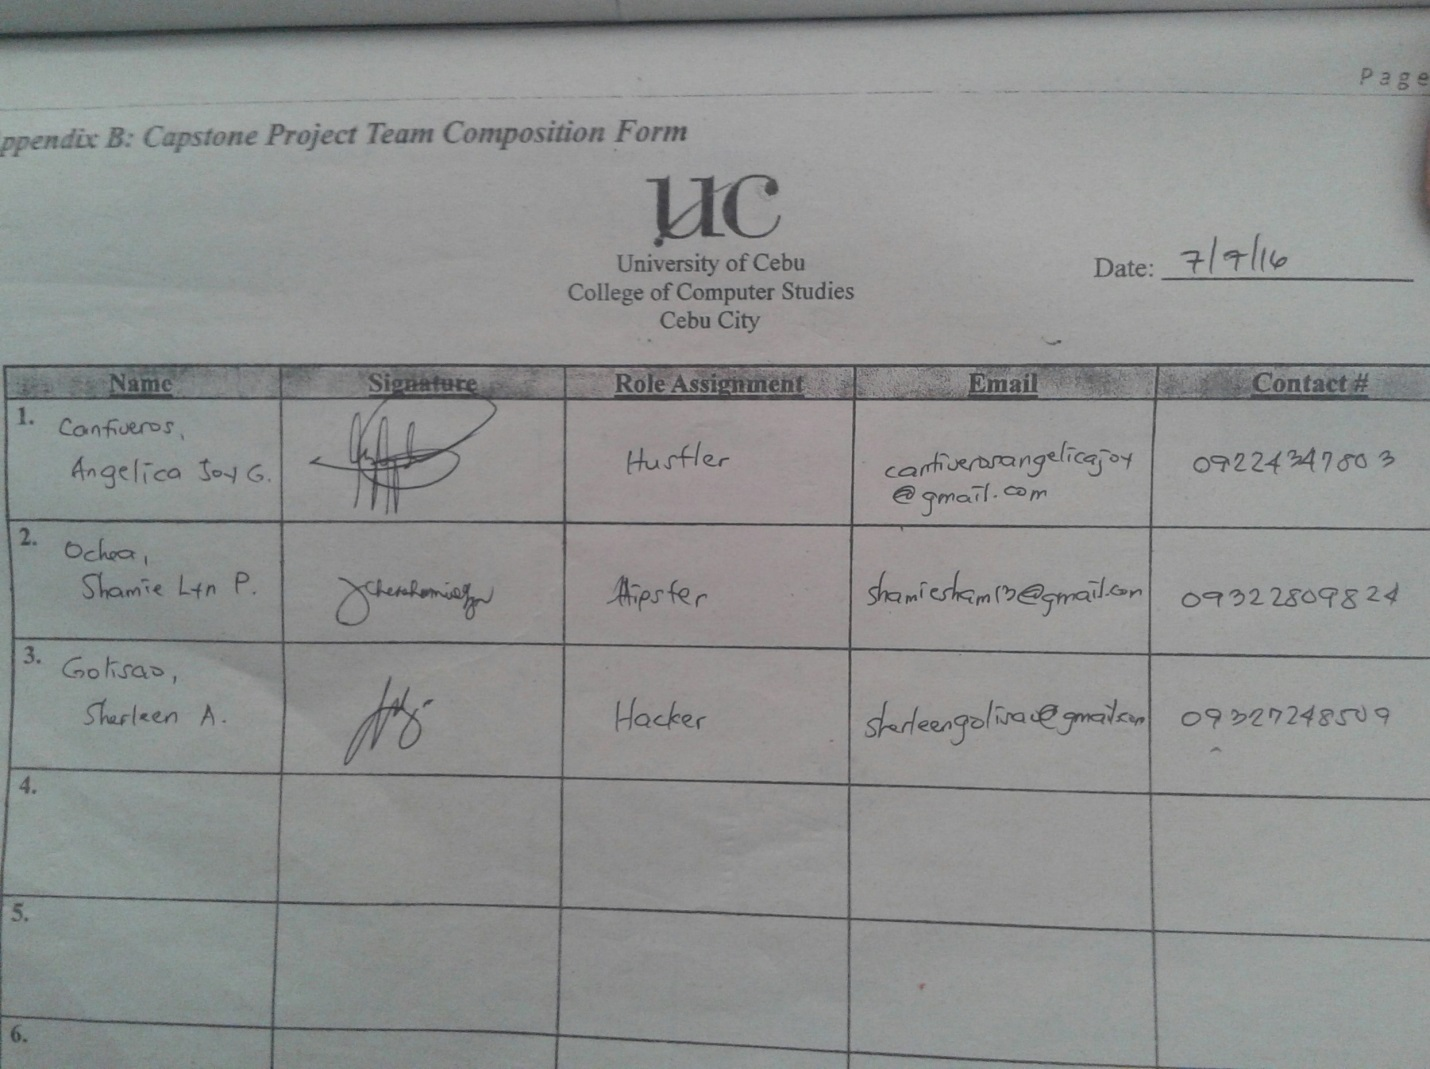 Page
ppendix B: Capstone Project Team Composition Form
UC
University of Cebu
College of Computer Studies
Cebu City
Date: 7/7/16
Name Signature Role Assignment Email Contact #
1. Cantiveros,
Angelica Joy G. Hustler cantiverosangelicajoy
@gmail.com 09224347803
2. Ochea,
Shamie Lyn P. Hipster shamiesham13@gmail.com 09322809824
3. Golisao,
Sherleen A. Hacker sherleengolisao@gmail.com 09327248509
4.
5.
6.